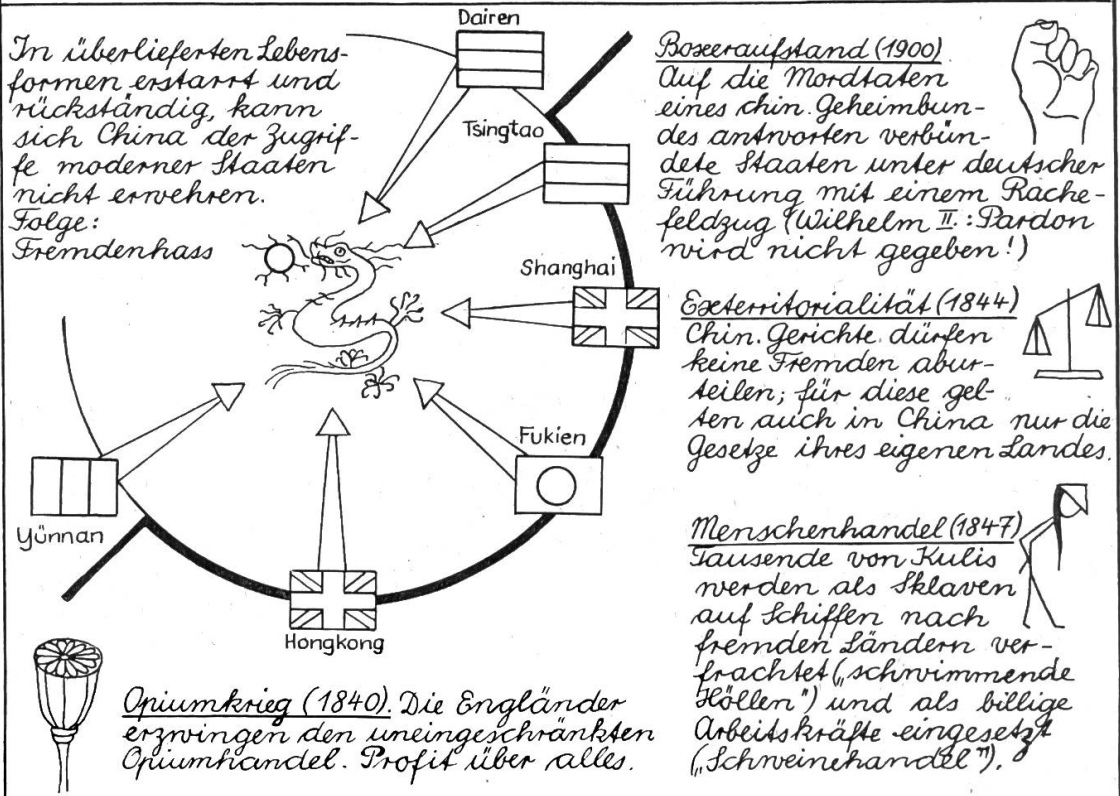 In überlieferten Lebens-
formen erstarrt und
rückständig, kann
sich China der Zugrif-
fe moderner Staaten
nicht erwehren.
Folge:
Fremdenhass
Dairen
Tsingtao
Shanghai
Fukien
Hongkong
Yünnan
Boxeraufstand (1900)
Auf die Mordtaten
eines chin. Geheimbun-
des antworten verbün-
dete Staaten unter deutscher
Führung mit einem Rache-
feldzug (Wilhelm II.: Pardon
wird nicht gegeben!)
Exterritorialität (1844)
Chin. Gerichte dürfen
keine Fremden abur-
teilen; für diese gel-
ten auch in China nur die
Gesetze ihres eigenen Landes.
Menschenhandel (1847)
Tausende von Kulis
werden als Sklaven
auf Schiffen nach
fremden Ländern ver-
frachtet („schwimmende
Höllen") und als billige
Arbeitskräfte eingesetzt
(„Schweinehandel").
Opiumkrieg (1840). Die Engländer
erzwingen den uneingeschränkten
Opiumhandel. Profit über alles.